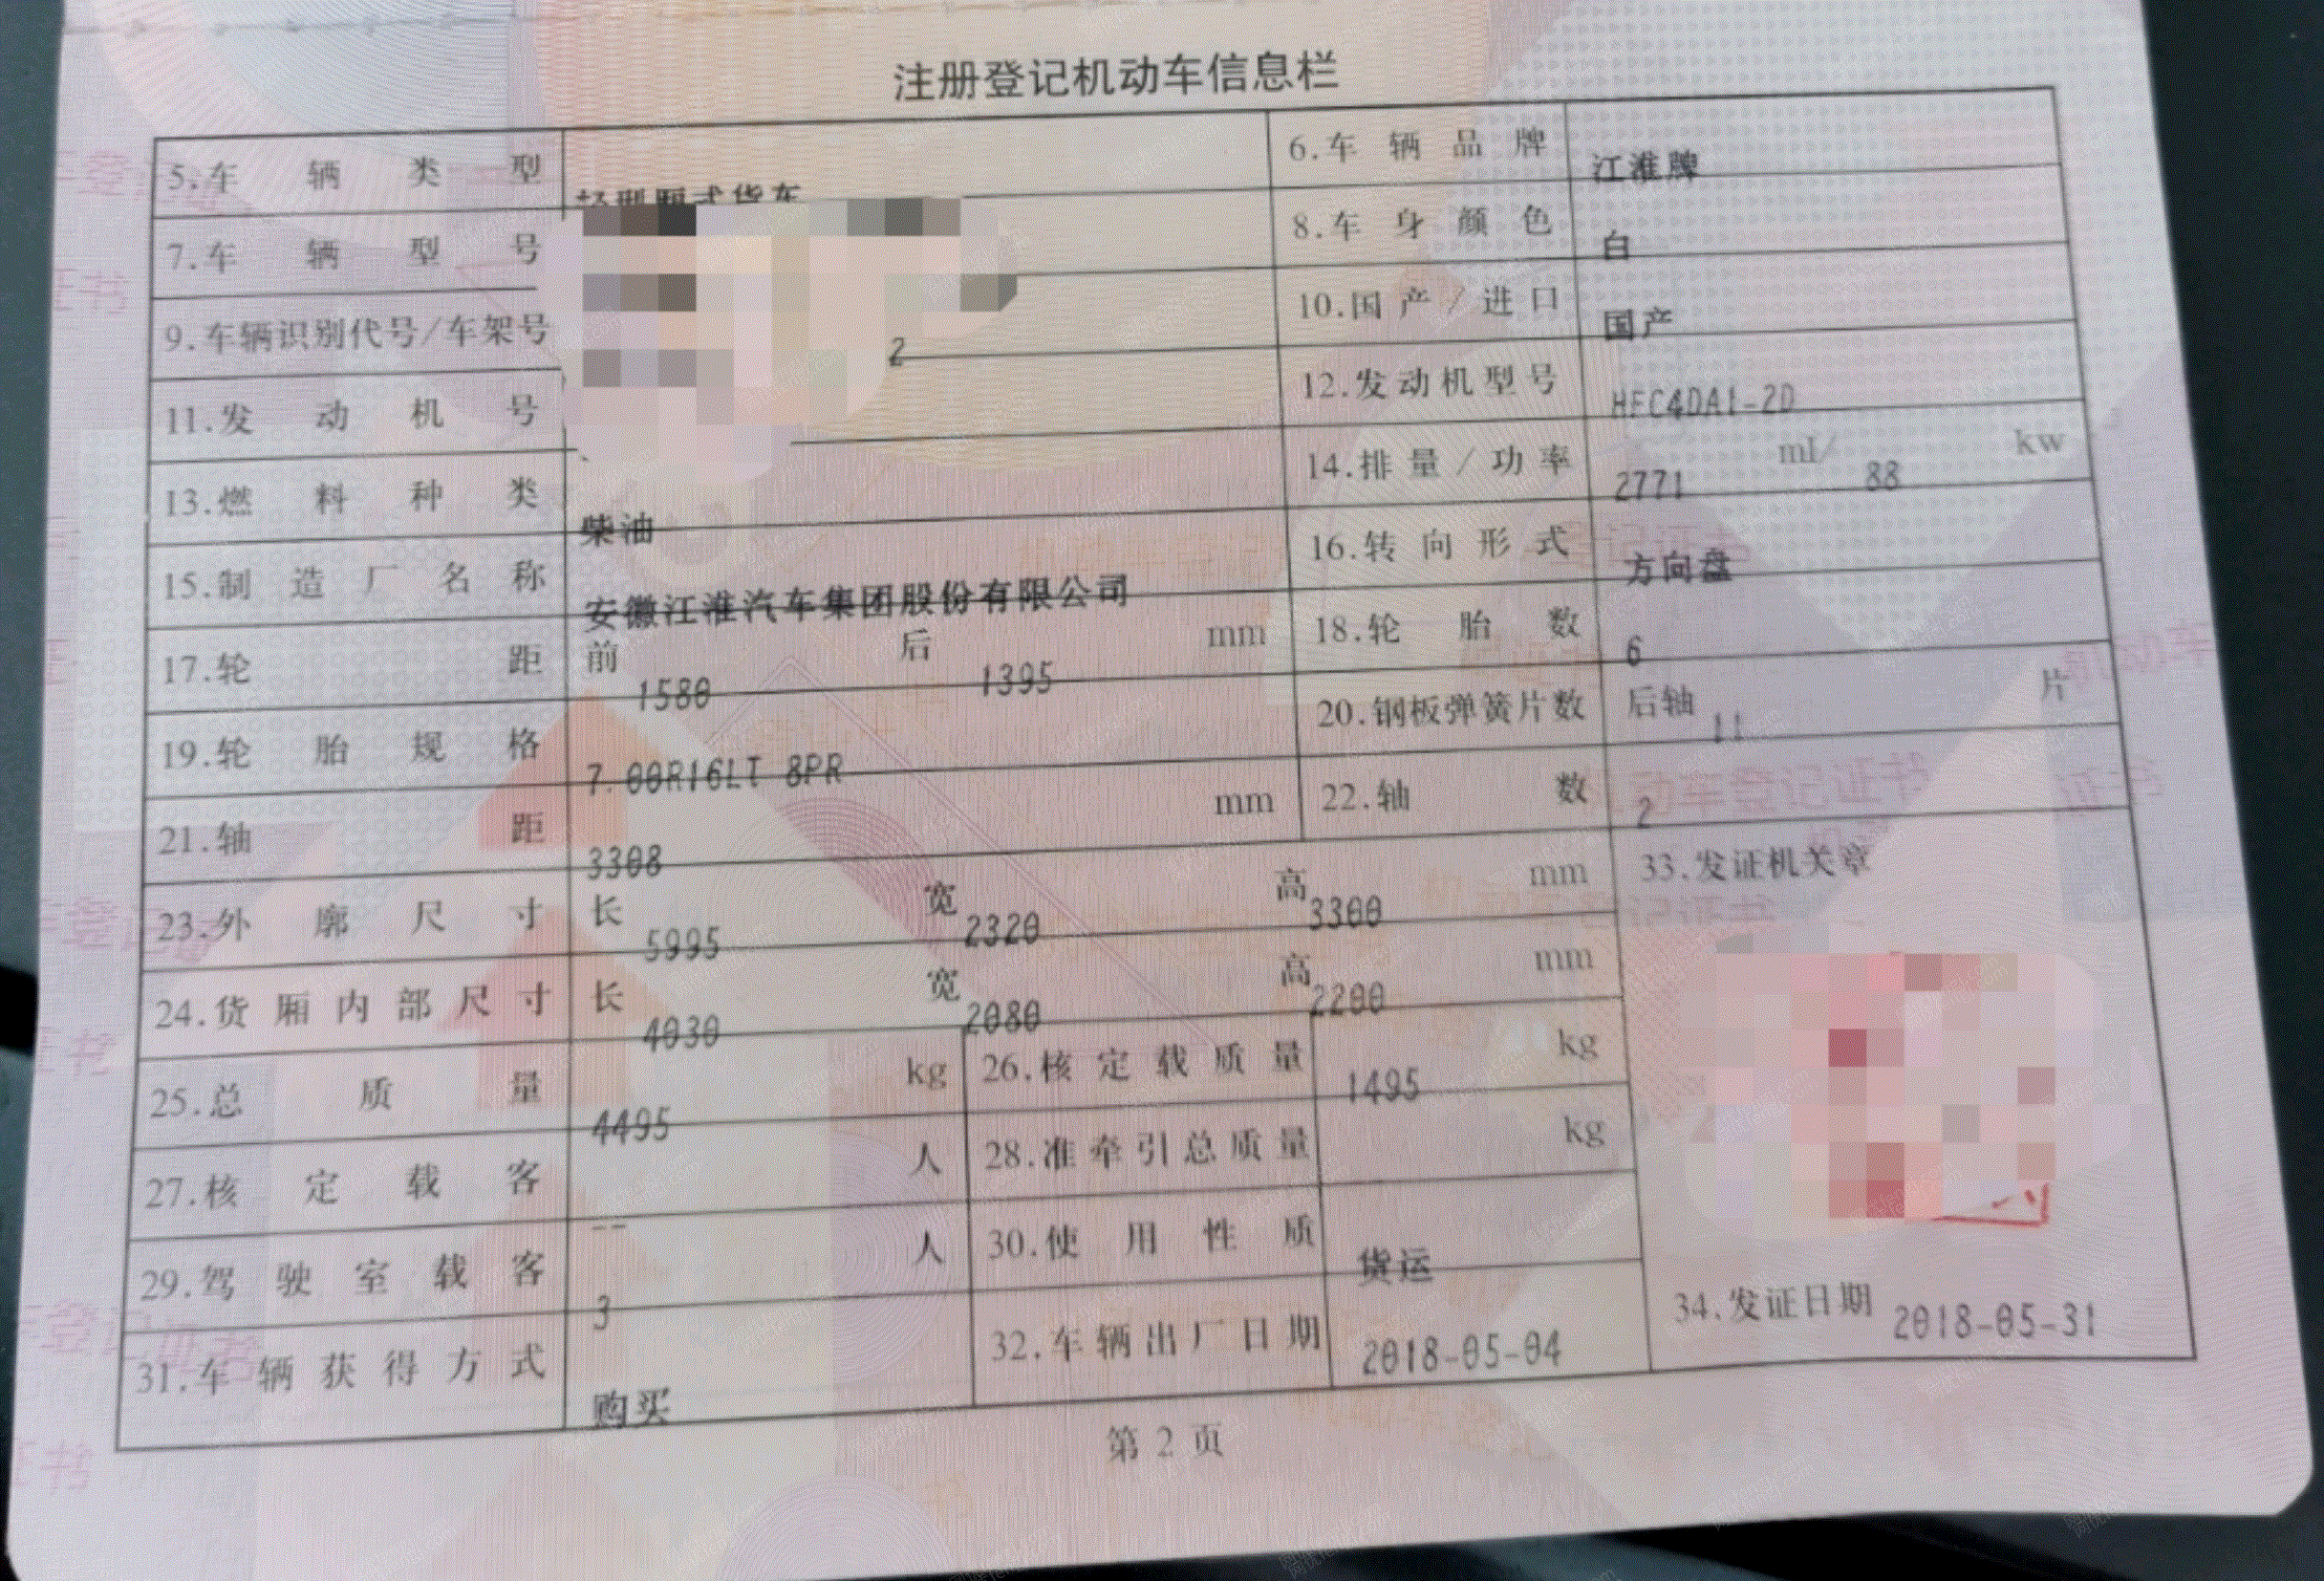 注册登记机动车信息栏
5.车辆类型 轻型厢式货车 6.车辆品牌 江淮牌
7.车辆型号 8.车身颜色 白
9.车辆识别代号/车架号 2 10.国产/进口 国产
11.发动机号 12.发动机型号 HFC4DA1-2D
13.燃料种类 柴油 14.排量/功率 2771 ml/ 88 kw
15.制造厂名称 安徽江淮汽车集团股份有限公司 16.转向形式 方向盘
17.轮距 前 1580 后 1395 mm 18.轮胎数 6
19.轮胎规格 7.00R16LT 8PR 20.钢板弹簧片数 后轴 11 片
21.轴距 3308 mm 22.轴数 2
23.外廓尺寸 长 5995 宽 2320 高 3300 mm 33.发证机关章
24.货厢内部尺寸 长 4030 宽 2080 高 2200 mm
25.总质量 4495 kg 26.核定载质量 1495 kg
27.核定载客 -- 人 28.准牵引总质量 kg
29.驾驶室载客 3 人 30.使用性质 货运
31.车辆获得方式 购买 32.车辆出厂日期 2018-05-04 34.发证日期 2018-05-31
第 2 页